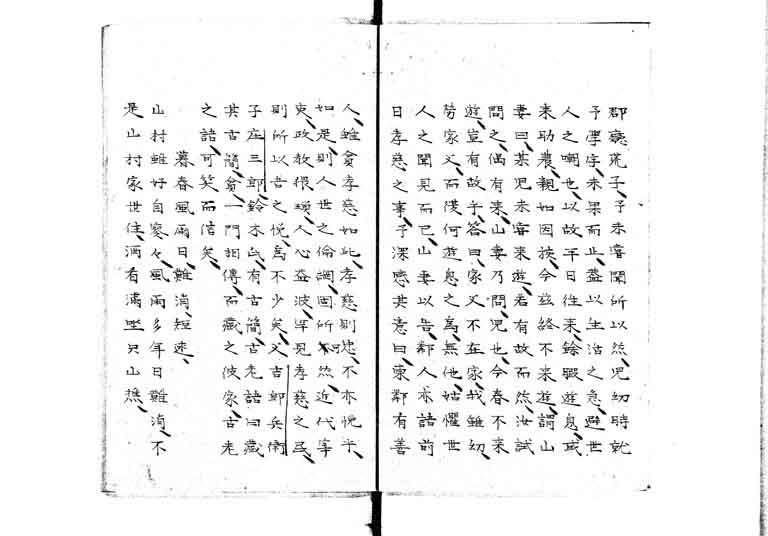 郡憙荒子、予未審聞所以然、児幼時就
予學字、未果而止、蓋以生治之急、避世
人之嘲也、以故平日往来、餘暇遊息、或
来助農、親如因族、今玆終不来遊、謂山
妻曰、某児未審来遊、若有故而然、汝試
問之、偶有来、山妻乃問、児也今春不来
遊、豈有故乎、答曰、家父不在家、我雖幼、
労家父、而後何遊息之為、無他、姑懼世
人之聞見而已、山妻以告、鄰人亦語前
日孝慈之事、予深感其意曰、東鄰有善
人、雖貧孝慈如此、孝慈則忠、不亦悦乎、
如是則人世之倫調、固所不然、近代事
吏、政教猥瑣、人心益波、罕見孝慈之民、
則所以吾之悦、為不少矣、又吉郎兵衛
子庄三郎、鈴木氏、有古簡、古老語曰、蔵
其古簡、貧一門相傳、而蔵之彼家、古老
之語、可笑而信矣、
暮春風雨日、難消、短述、
山村雖好自寥々、風雨多年日難消、不
是山村家世住、酒肴満㘴只山樵、